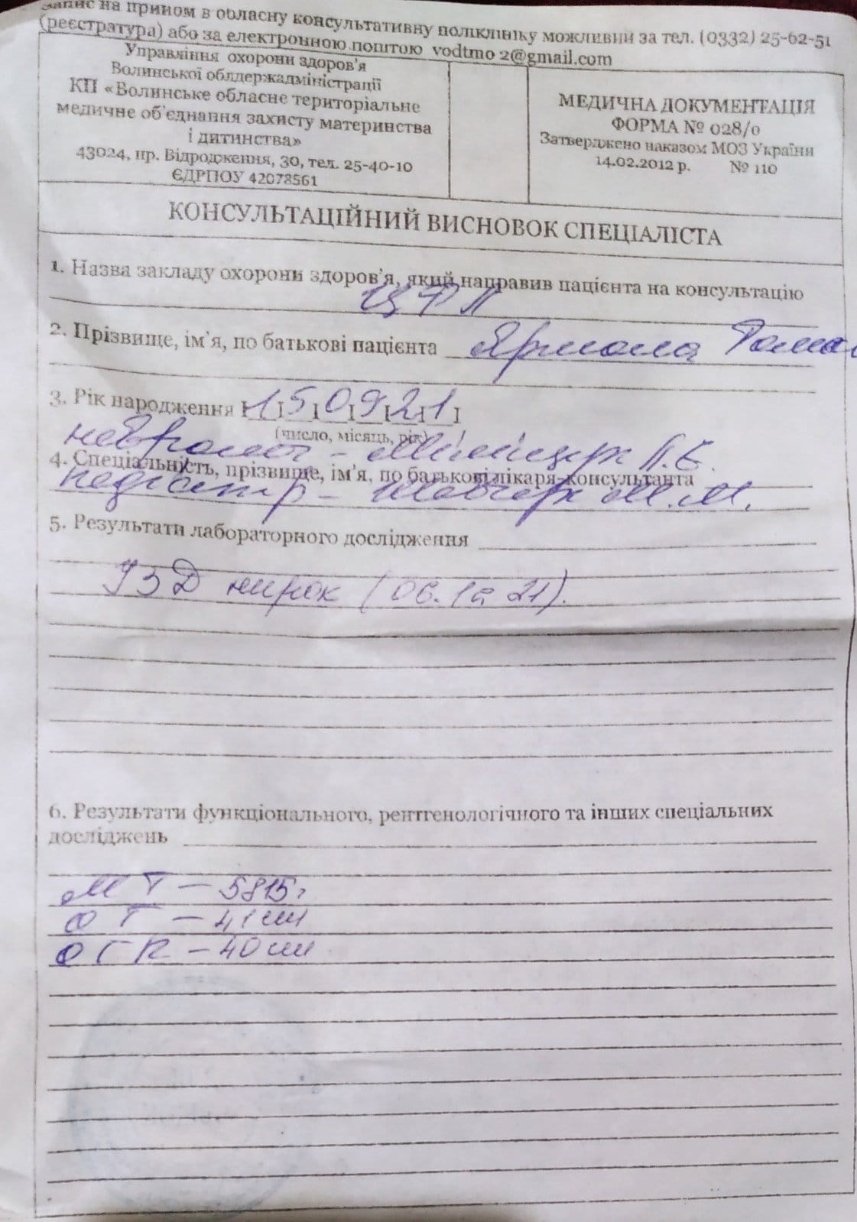 Запис на прийом в обласну консультативну поліклініку можливий за тел. (0332) 25-62-51
(реєстратура) або за електронною поштою vodtmo2@gmail.com
Управління охорони здоров'я
Волинської облдержадміністрації
КП «Волинське обласне територіальне
медичне об'єднання захисту материнства
і дитинства»
43024, пр. Відродження, 30, тел. 25-40-10
ЄДРПОУ 42078561
МЕДИЧНА ДОКУМЕНТАЦІЯ
ФОРМА № 028/о
Затверджено наказом МОЗ України
14.02.2012 р. № 110
КОНСУЛЬТАЦІЙНИЙ ВИСНОВОК СПЕЦІАЛІСТА
1. Назва закладу охорони здоров'я, який направив пацієнта на консультацію
2. Прізвище, ім'я, по батькові пацієнта Ярмола
3. Рік народження 150921
(число, місяць, рік)
невролог -
4. Спеціальність, прізвище, ім'я, по батькові лікаря-консультанта
педіатр - М.М.
5. Результати лабораторного дослідження
УЗД нирок
6. Результати функціонального, рентгенологічного та інших спеціальних
досліджень
МТ - 5815г
ОГ - 41 см
ОГК - 40 см